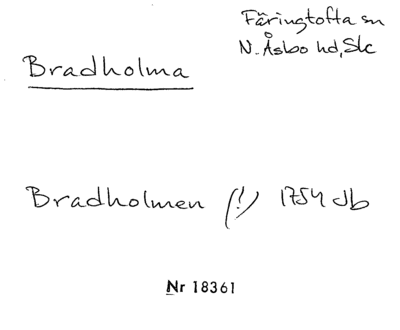 Färingtofta sn
N. Åsbo hd, Sk
Bradholma
Bradholmen (!) 1754 db
Nr 18361